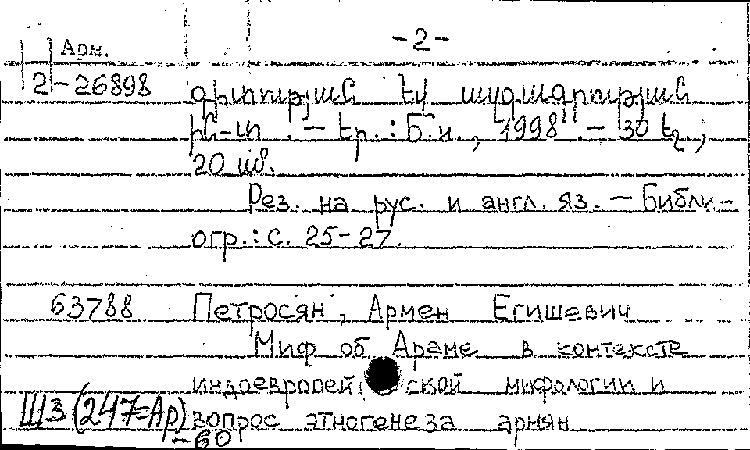 -2-
Арм.
2-26898 գիտության եվ ազգագրության
ին-տ. – Եր. : Б.и., 1998. – 30 էջ,
20 սմ.
Рез. на рус. и англ. яз. – Библи-
огр.: с. 25-27.
63788 Петросян, Армен Егишевич
Миф об Араме в контексте
индоевропейской мифологии и
Ш3(247=Ар) вопрос этногенеза армян
-60